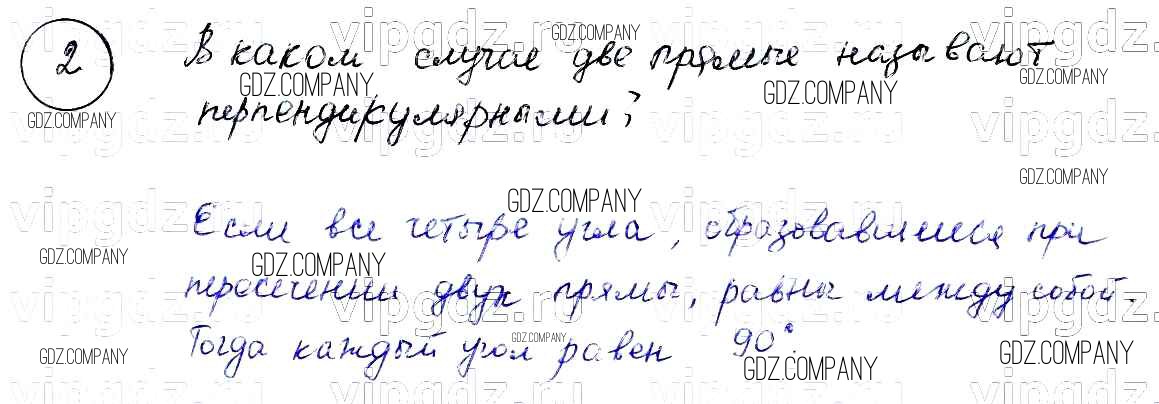 2 В каком случае две прямые называют
перпендикулярными?
Если все четыре угла, образовавшиеся при
пересечении двух прямы, равны между собой.
Тогда каждый угол равен 90°.
vipgdz.ru
GDZ.COMPANY